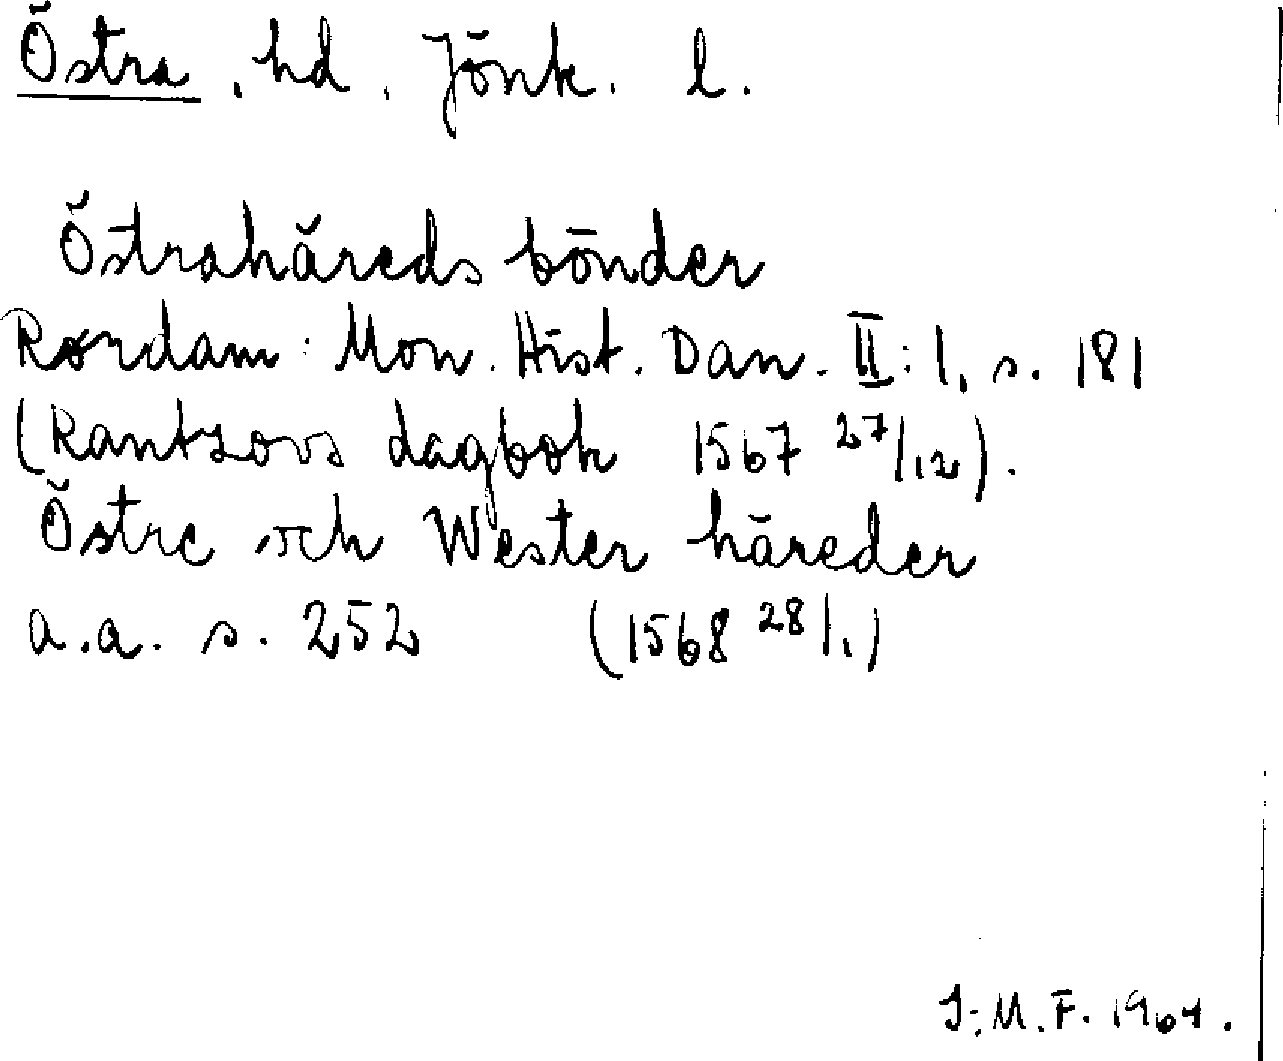 Östra, hd, Jönk. l.
Östrahäreds bönder
Rørdam: Mon. Hist. Dan. II:1, s. 181
(Rantzovs dagbok 1567 27/12).
Östre och Wester häreder
a.a. s. 252 (1568 28/1)
I.M.F. 1964.